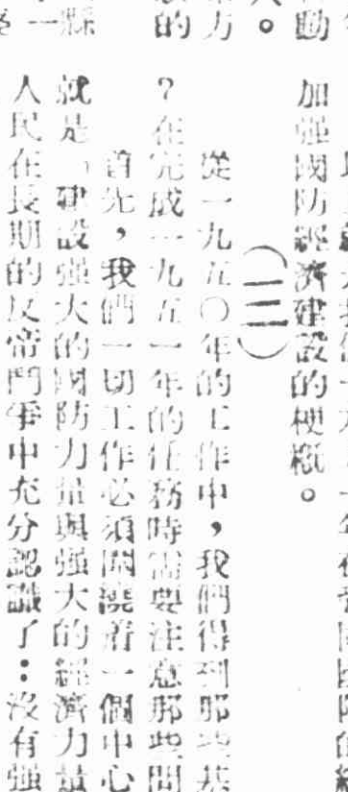 動
。
方
的
縣
一
加强國防經濟建設的梗概。
（三）
從一九五〇年的工作中，我們得到那些基
？在完成一九五一年的任務時需要注意那些問
首先，我們一切工作必須圍繞着一個中心
就是「建設强大的國防力量與强大的經濟力量
人民在長期的反帝鬥爭中充分認識了：沒有强